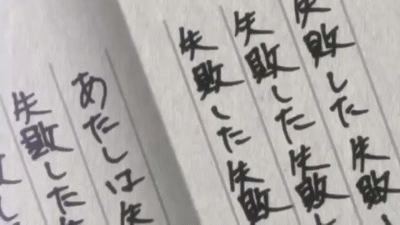 失敗した失敗
失敗した失敗し
失敗した失敗
あたしは失
失敗した